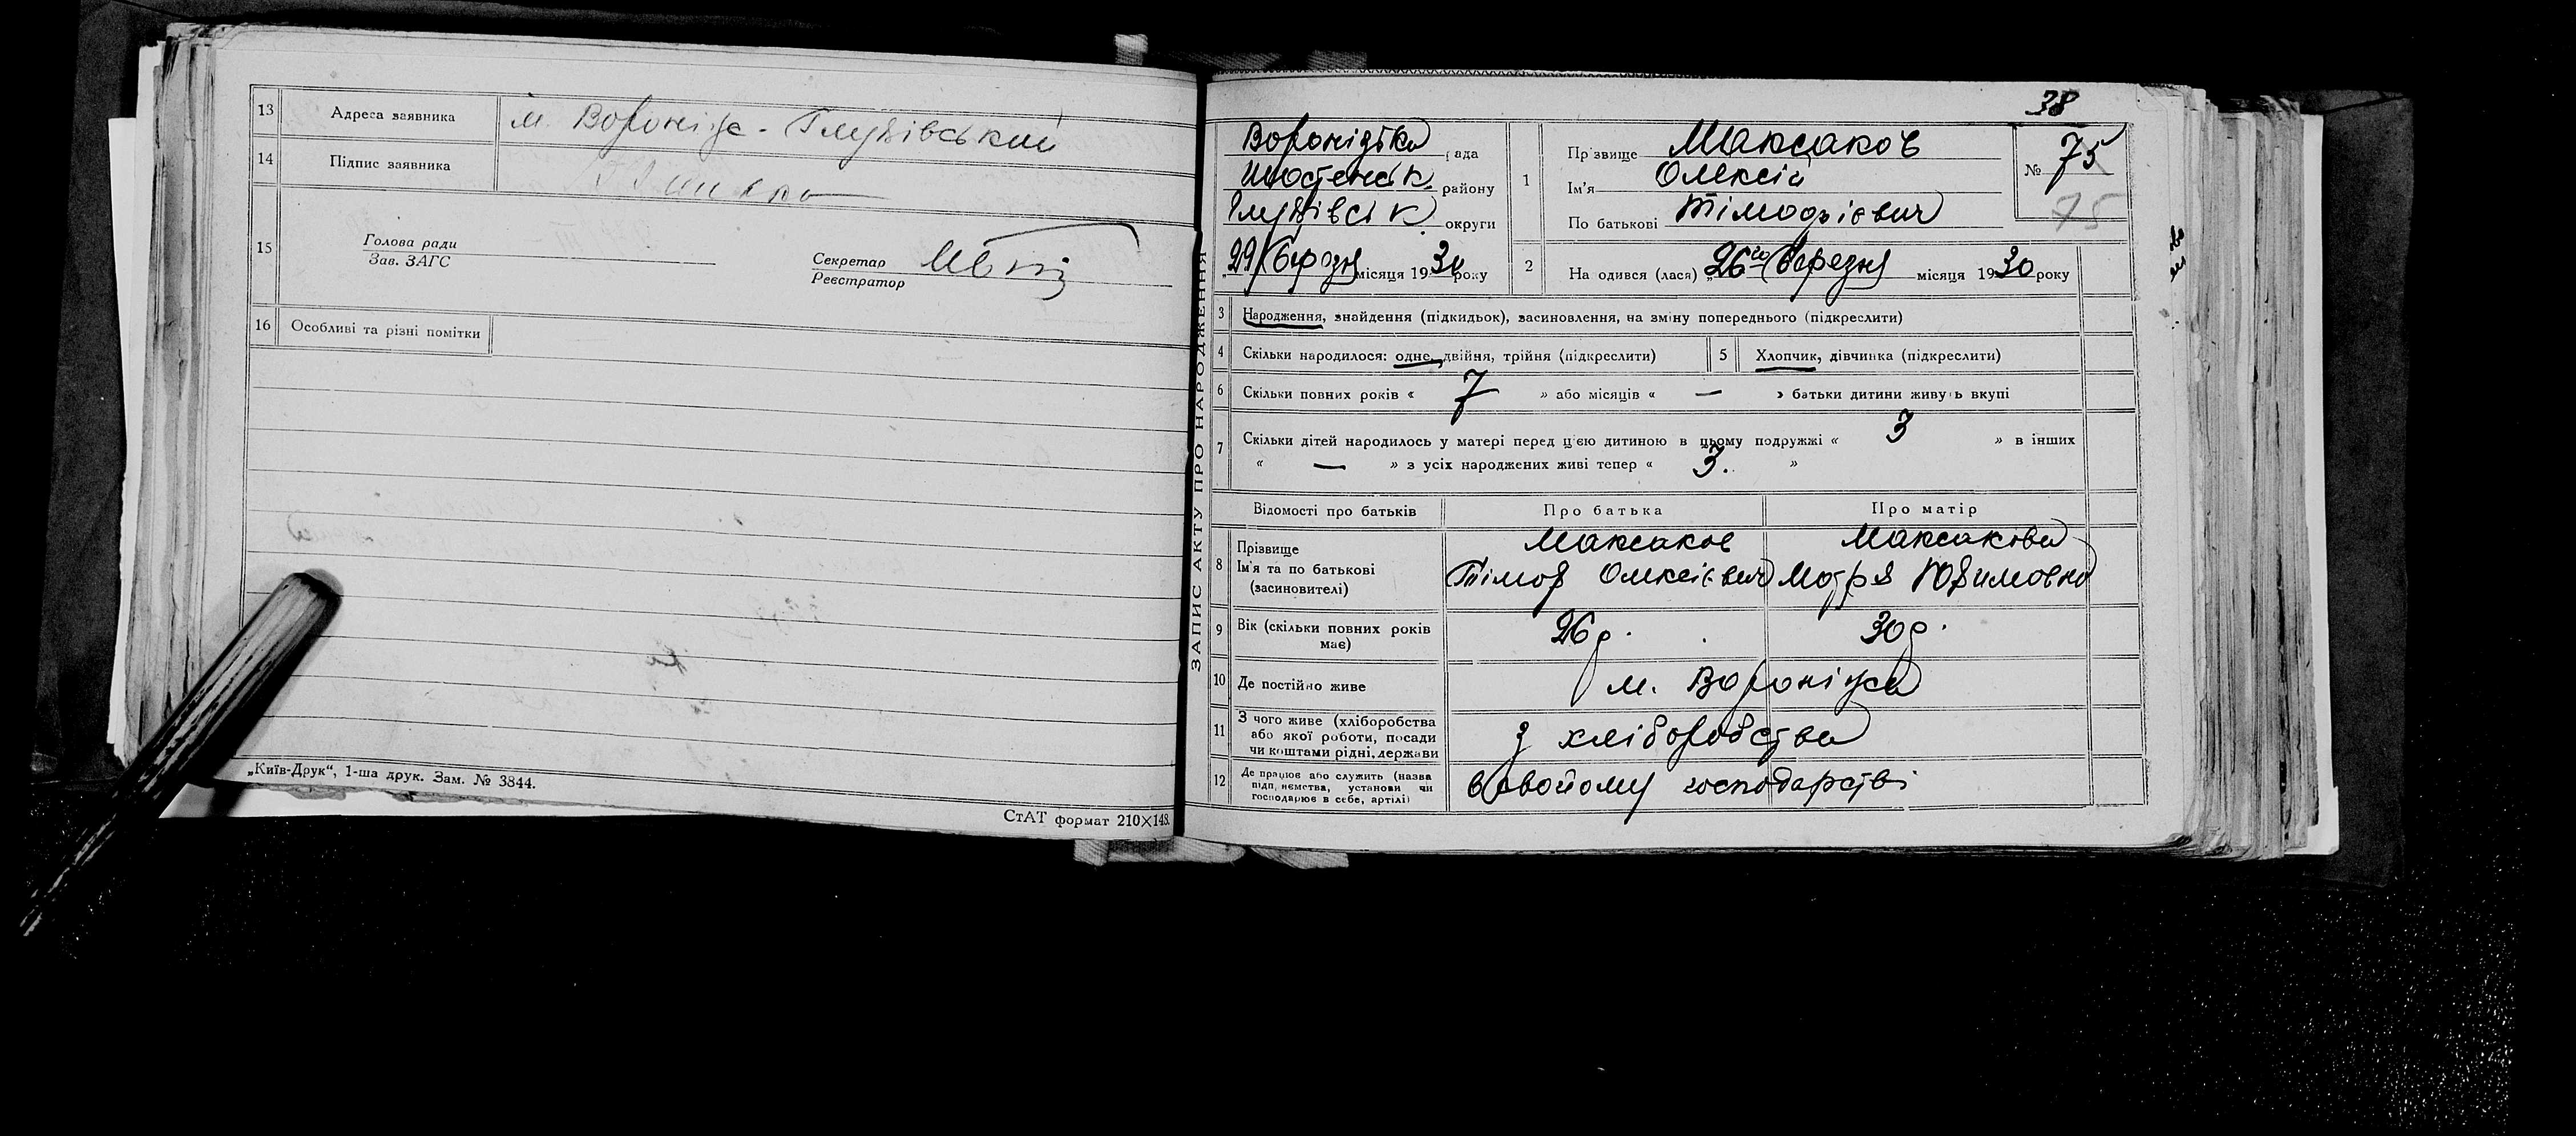 13 Адреса заявника м. Вороніже - Глухівський
14 Підпис заявника
15 Голова ради
Зав. ЗАГС
Секретар
Реєстратор
16 Особливі та різні помітки
„Київ-Друк“, 1-ша друк. Зам. № 3844.
СтАТ формат 210×148.
ЗАПИС АКТУ ПРО НАРОДЖЕННЯ
38
Воронізька рада
Шостенськ. району
Глухівськ. округи
29 березня місяця 1930 року
1 Прізвище Максаков
Ім'я Олексій
По батькові Тімофієвич
№ 75
75
2 На одився (лася) „26го березня місяця 1930 року
3 Народження, знайдення (підкидьок), засиновлення, на зміну попереднього (підкреслити)
4 Скільки народилося: одне, двійня, трійня (підкреслити) 5 Хлопчик, дівчинка (підкреслити)
6 Скільки повних років « 7 » або місяців « — » батьки дитини живуть вкупі
7 Скільки дітей народилось у матері перед цією дитиною в цьому подружжі « 3 » в інших
« — » з усіх народжених живі тепер « 3. »
Відомості про батьків Про батька Про матір
8 Прізвище Максаков Максакова
Ім'я та по батькові Тімоф Олексієвич Мотря Юхимовна
(засиновителі)
9 Вік (скільки повних років має) 26 р. 30 р.
10 Де постійно живе м. Вороніжа
11 З чого живе (хліборобства
або якої роботи, посади
чи коштами рідні, держави з хліборобства
12 Де працює або служить (назва
підприємства, установи чи
господарює в себе, артілі) в свойому господарстві